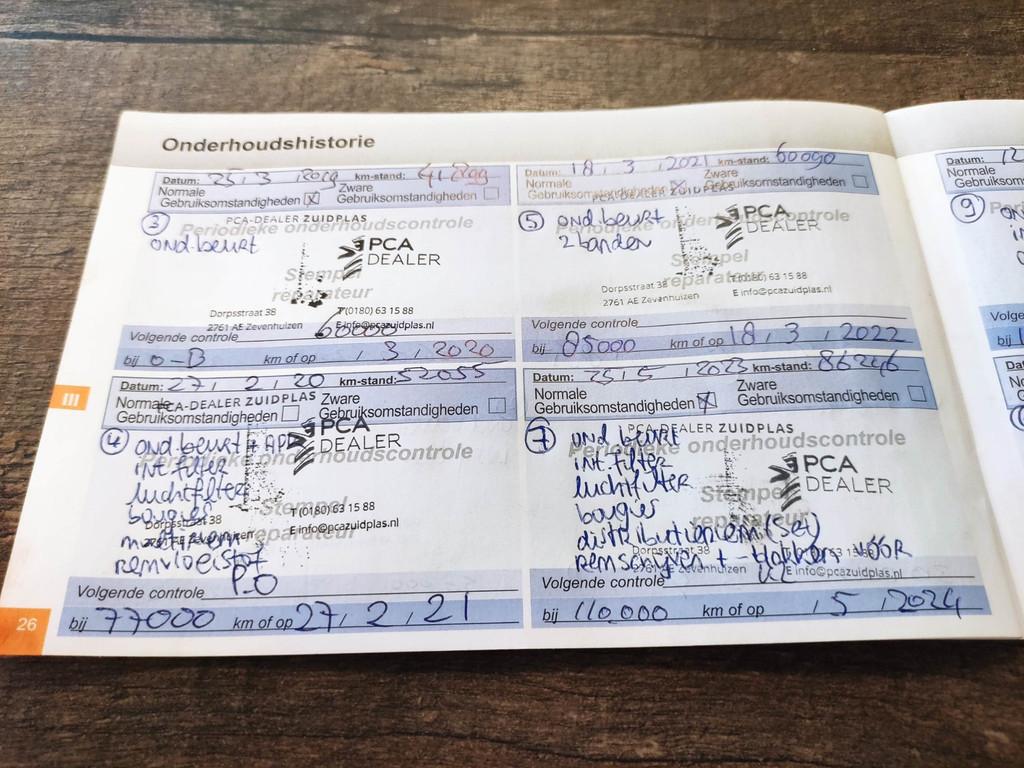 Onderhoudshistorie
Datum: 25, 3, 2019 km-stand: 41899
Normale Gebruiksomstandigheden X Zware Gebruiksomstandigheden
PCA-DEALER ZUIDPLAS
Periodieke onderhoudscontrole
3 ond.beurt
PCA DEALER
Stempel reparateur
Dorpsstraat 38 T(0180) 63 15 88
2761 AE Zevenhuizen E info@pcazuidplas.nl
Volgende controle 60000
bij O-B km of op , 3, 2020
Datum: 27, 2, 20 km-stand: 52055
Normale Gebruiksomstandigheden Zware Gebruiksomstandigheden
PCA-DEALER ZUIDPLAS
Periodieke onderhoudscontrole
4 ond.beurt + AP
PCA DEALER
int.filter
luchtfilter
bougies
Dorpsstraat 38 T(0180) 63 15 88
2761 AE Zevenhuizen E info@pcazuidplas.nl
remvloeistof
P.O
Volgende controle
bij 77000 km of op 27, 2, 21
Datum: 18, 3, 2021 km-stand: 60090
Normale Gebruiksomstandigheden X Zware Gebruiksomstandigheden
PCA-DEALER ZUIDPLAS
Periodieke onderhoudscontrole
5 ond.beurt
2 banden
PCA DEALER
Stempel reparateur
Dorpsstraat 38 T(0180) 63 15 88
2761 AE Zevenhuizen E info@pcazuidplas.nl
Volgende controle
bij 85000 km of op 18, 3, 2022
Datum: 25, 5, 2023 km-stand: 86246
Normale Gebruiksomstandigheden X Zware Gebruiksomstandigheden
PCA-DEALER ZUIDPLAS
Periodieke onderhoudscontrole
7 ond.beurt
int.filter
PCA DEALER
luchtfilter
Stempel reparateur
bougies
distributieriem (set)
remschijven + -blokken VÓÓR
Dorpsstraat 38 63 15 88
Zevenhuizen E info@pcazuidplas.nl
Volgende controle
bij 110.000 km of op , 5, 2024
III
26
Datum: 12
Normale
Gebruiksom
9
Volge
bij
Dat
Nor
Geb